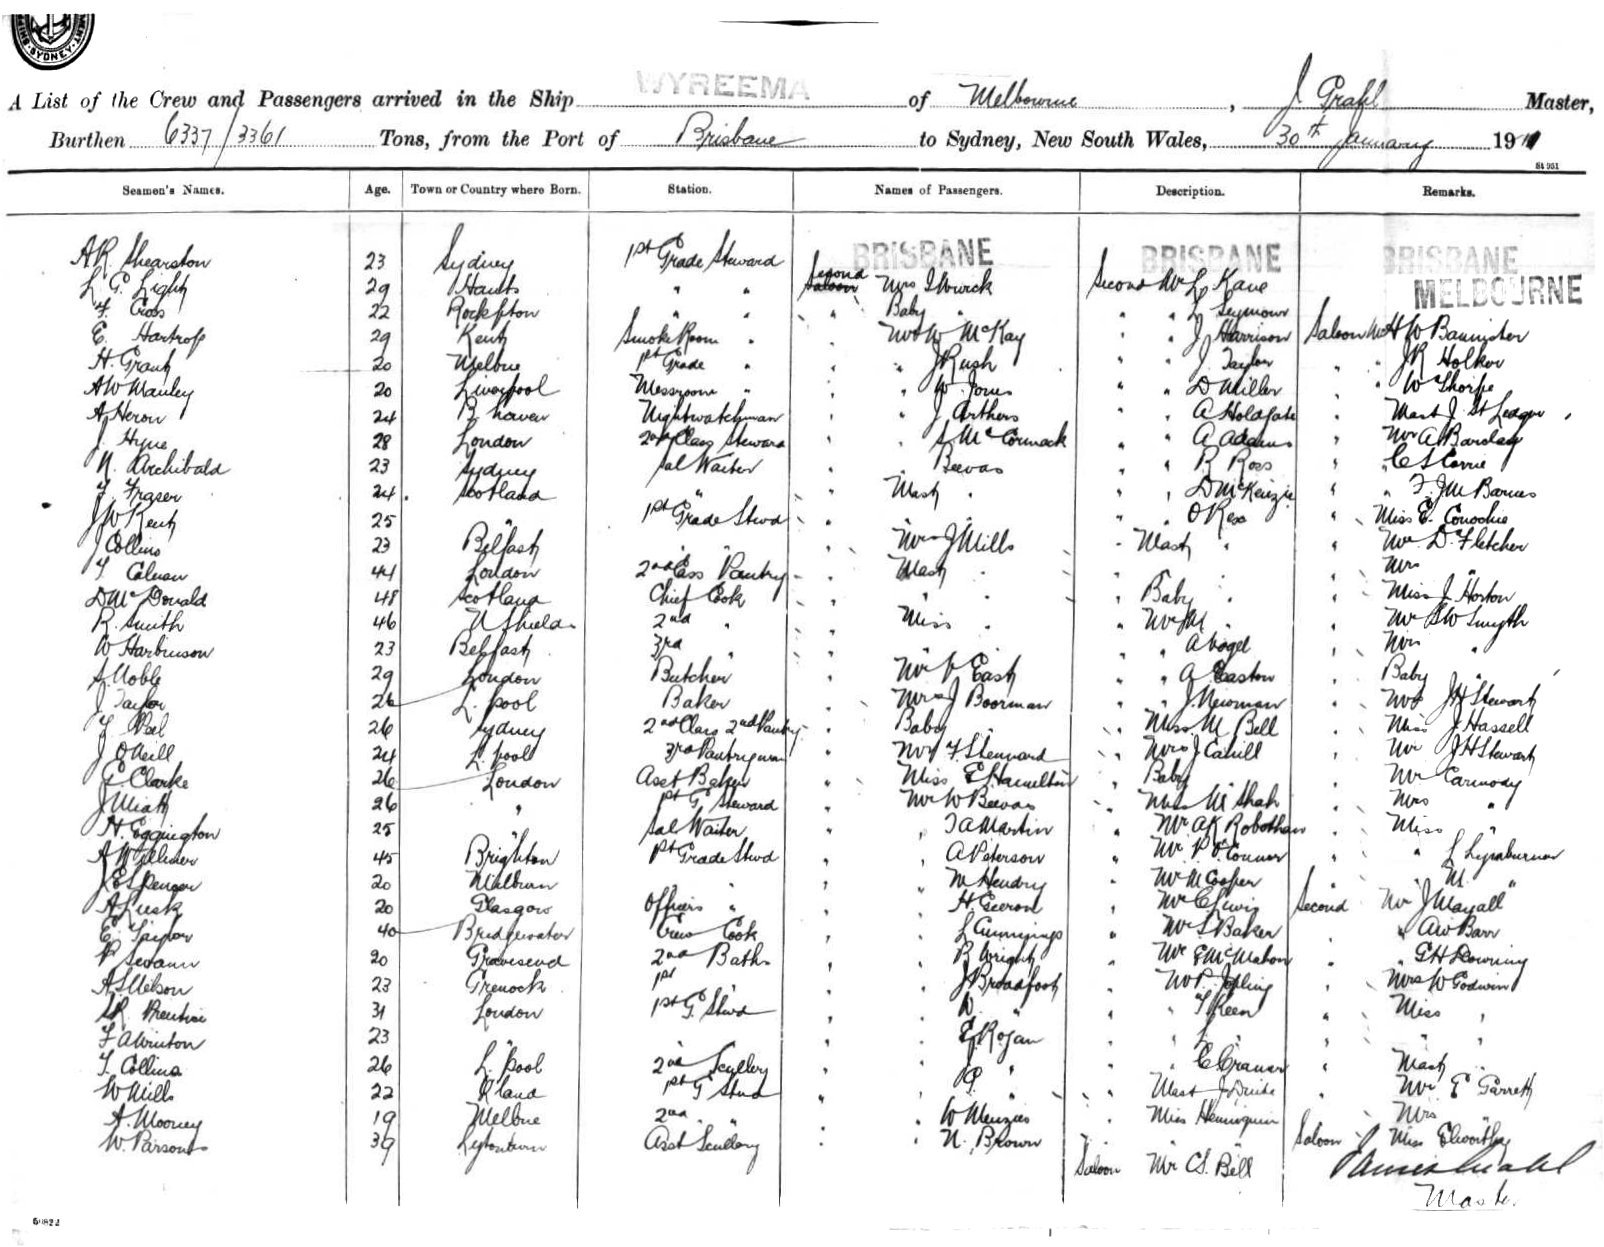 SYDNEY
WYREEMA
A List of the Crew and Passengers arrived in the Ship WYREEMA of Melbourne, J Grahl Master,
Burthen 6337/3361 Tons, from the Port of Brisbane to Sydney, New South Wales, 30th January 191
St 951
Seamen's Names. Age. Town or Country where Born. Station. Names of Passengers. Description. Remarks.
BRISBANE BRISBANE BRISBANE
MELBOURNE
A R Shearston 23 Sydney 1st Grade Steward
L. G. Light 29 Hants " " Second Saloon Mrs Second Mr L Kane
F. Cross 22 Rockpton " " " Baby " " " L Seymour
E. Hartrop 29 Kent Smoke Room " Mr W McKay " " J Harrison Saloon Mr H W Bannister
H. Grant 20 Melbne 1st Grade " " J Rush " " J. Taylor " " J R Holker
A W Manley 20 Liverpool Messroom " " W. Jones " " D Miller " W Thorpe
A Heron 24 B haven Nightwatchman " J Arthers " " A Holdgate " Mast J. St Ledger
J. Hyne 28 London 2nd Class Steward " S McCormack " " A Adams " Mr A Barclay
N. Archibald 23 Sydney Sal Waiter " Beevas " " R Ross " " C S Corrie
F Fraser 24 Scotland " Mast " " " D McKenzie " " F. J M Barnes
J W Kent 25 " 1st Grade Stwd " " " O Rex " Miss E. Conochie
J Collins 23 Belfast " " Mrs J Mills " Mast " " Mr D. Fletcher
T Colman 44 London 2nd Class Pantry " Mast " " " Mrs "
D McDonald 48 Scotland Chief Cook " " " Baby " " Miss J Horton
R. Smith 46 N Shields 2nd " " Miss " " Mr M " Mr S W Smyth
W Harbinson 23 Belfast 3rd " " " " " A Vogel " Mrs "
S Noble 29 London Butcher " Mr V East " " A Easton " Baby "
J Taylor 26 L. pool Baker " Mrs J Boorman " " J. Newman " Mrs J H Stewart
26 Sydney 2nd Class 2nd Pantry " Baby " " Miss M Bell " Miss J Hassell
J O'Neill 24 L. pool 3rd Pantryman " Mr F. Stennard " Mrs J Cahill " Mr J H Stewart
E. Clarke 26 London Asst Baker " Miss E Hamilton " Baby " " Mr Carmody
J Miatt 26 " 1st G Steward " Mr W Beevas " Miss M Shah " Mrs "
H. Eggington 25 " Sal Waiter " " T A Martin " Mr A K Robotham " Miss "
A Willmer 45 Brighton 1st Grade Stwd " " A Peterson " Mr P O'Connor " " L Lynaburner
J E Spencer 20 Melburn " " " W Hendry " Mr M Cooper " " M. "
A Lusk 20 Glasgow Officers " " " H. " Mr C Lewis Second Mr J Mayall
E. Taylor 40 Bridgewater Crew Cook " " L Cummings " Mr S Baker " " A W Barr
P Swann 20 Gravesend 2nd Baths " " R Wright " Mr E McMahon " " G H Downing
A S Nelson 23 Grenock 1st " " " J Broadfoot " Mr P. Jopling " Mrs W Godwin
S R Prentice 31 London 1st G. Stwd " " W. " " " T Keen " Miss "
F A Winton 23 " " " E Rogan " " L. " " " "
T. Collins 26 L. pool 2nd Scullery " " J. " " " C Cramer " Mast "
W Mills 22 1st G Stwd " " P. " " Mast J " Mr E Garrett
A. Mooney 19 Melbne 2nd " " " " W Menzies " Miss Hennequin " Mrs "
W. Parsons 39 Leytonturn Asst Scullery " " N. Brown " " " Saloon Miss Elworthy
Saloon Mr C S. Bell
James Grahl
Master.